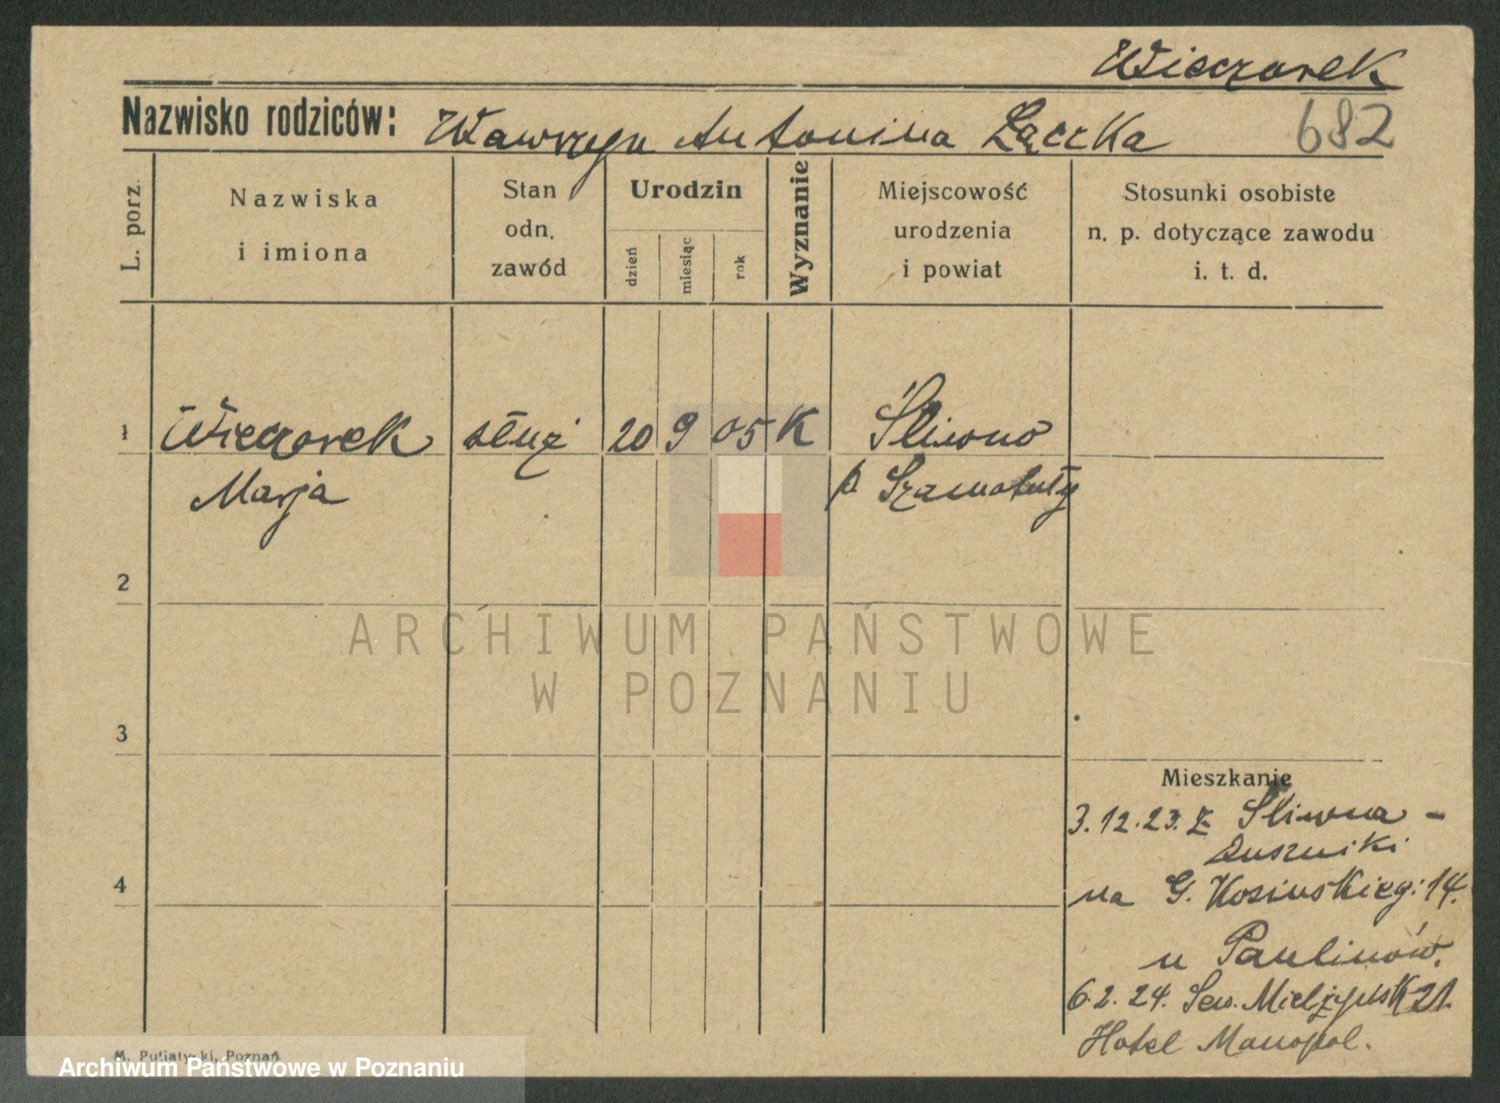 Wieczorek
Nazwisko rodziców: Wawrzyn Antonina Łączka 682
L. porz.
Nazwiska
i imiona
Stan
odn.
zawód
Urodzin
dzień
miesiąc
rok
Wyznanie
Miejscowość
urodzenia
i powiat
Stosunki osobiste
n. p. dotyczące zawodu
i. t. d.
1 Wieczorek służ 20 9 05 K Śliwno
Marja p Szamotuły
2
3
Mieszkanie
3.12.23. z Śliwna -
Duszniki
4
na G. Kosinskieg: 14.
u Paulinów.
6.2.24. Sew. Mielżyńsk 21.
Hotel Monopol.
M. Putiatycki, Poznań
ARCHIWUM PAŃSTWOWE
W POZNANIU
Archiwum Państwowe w Poznaniu